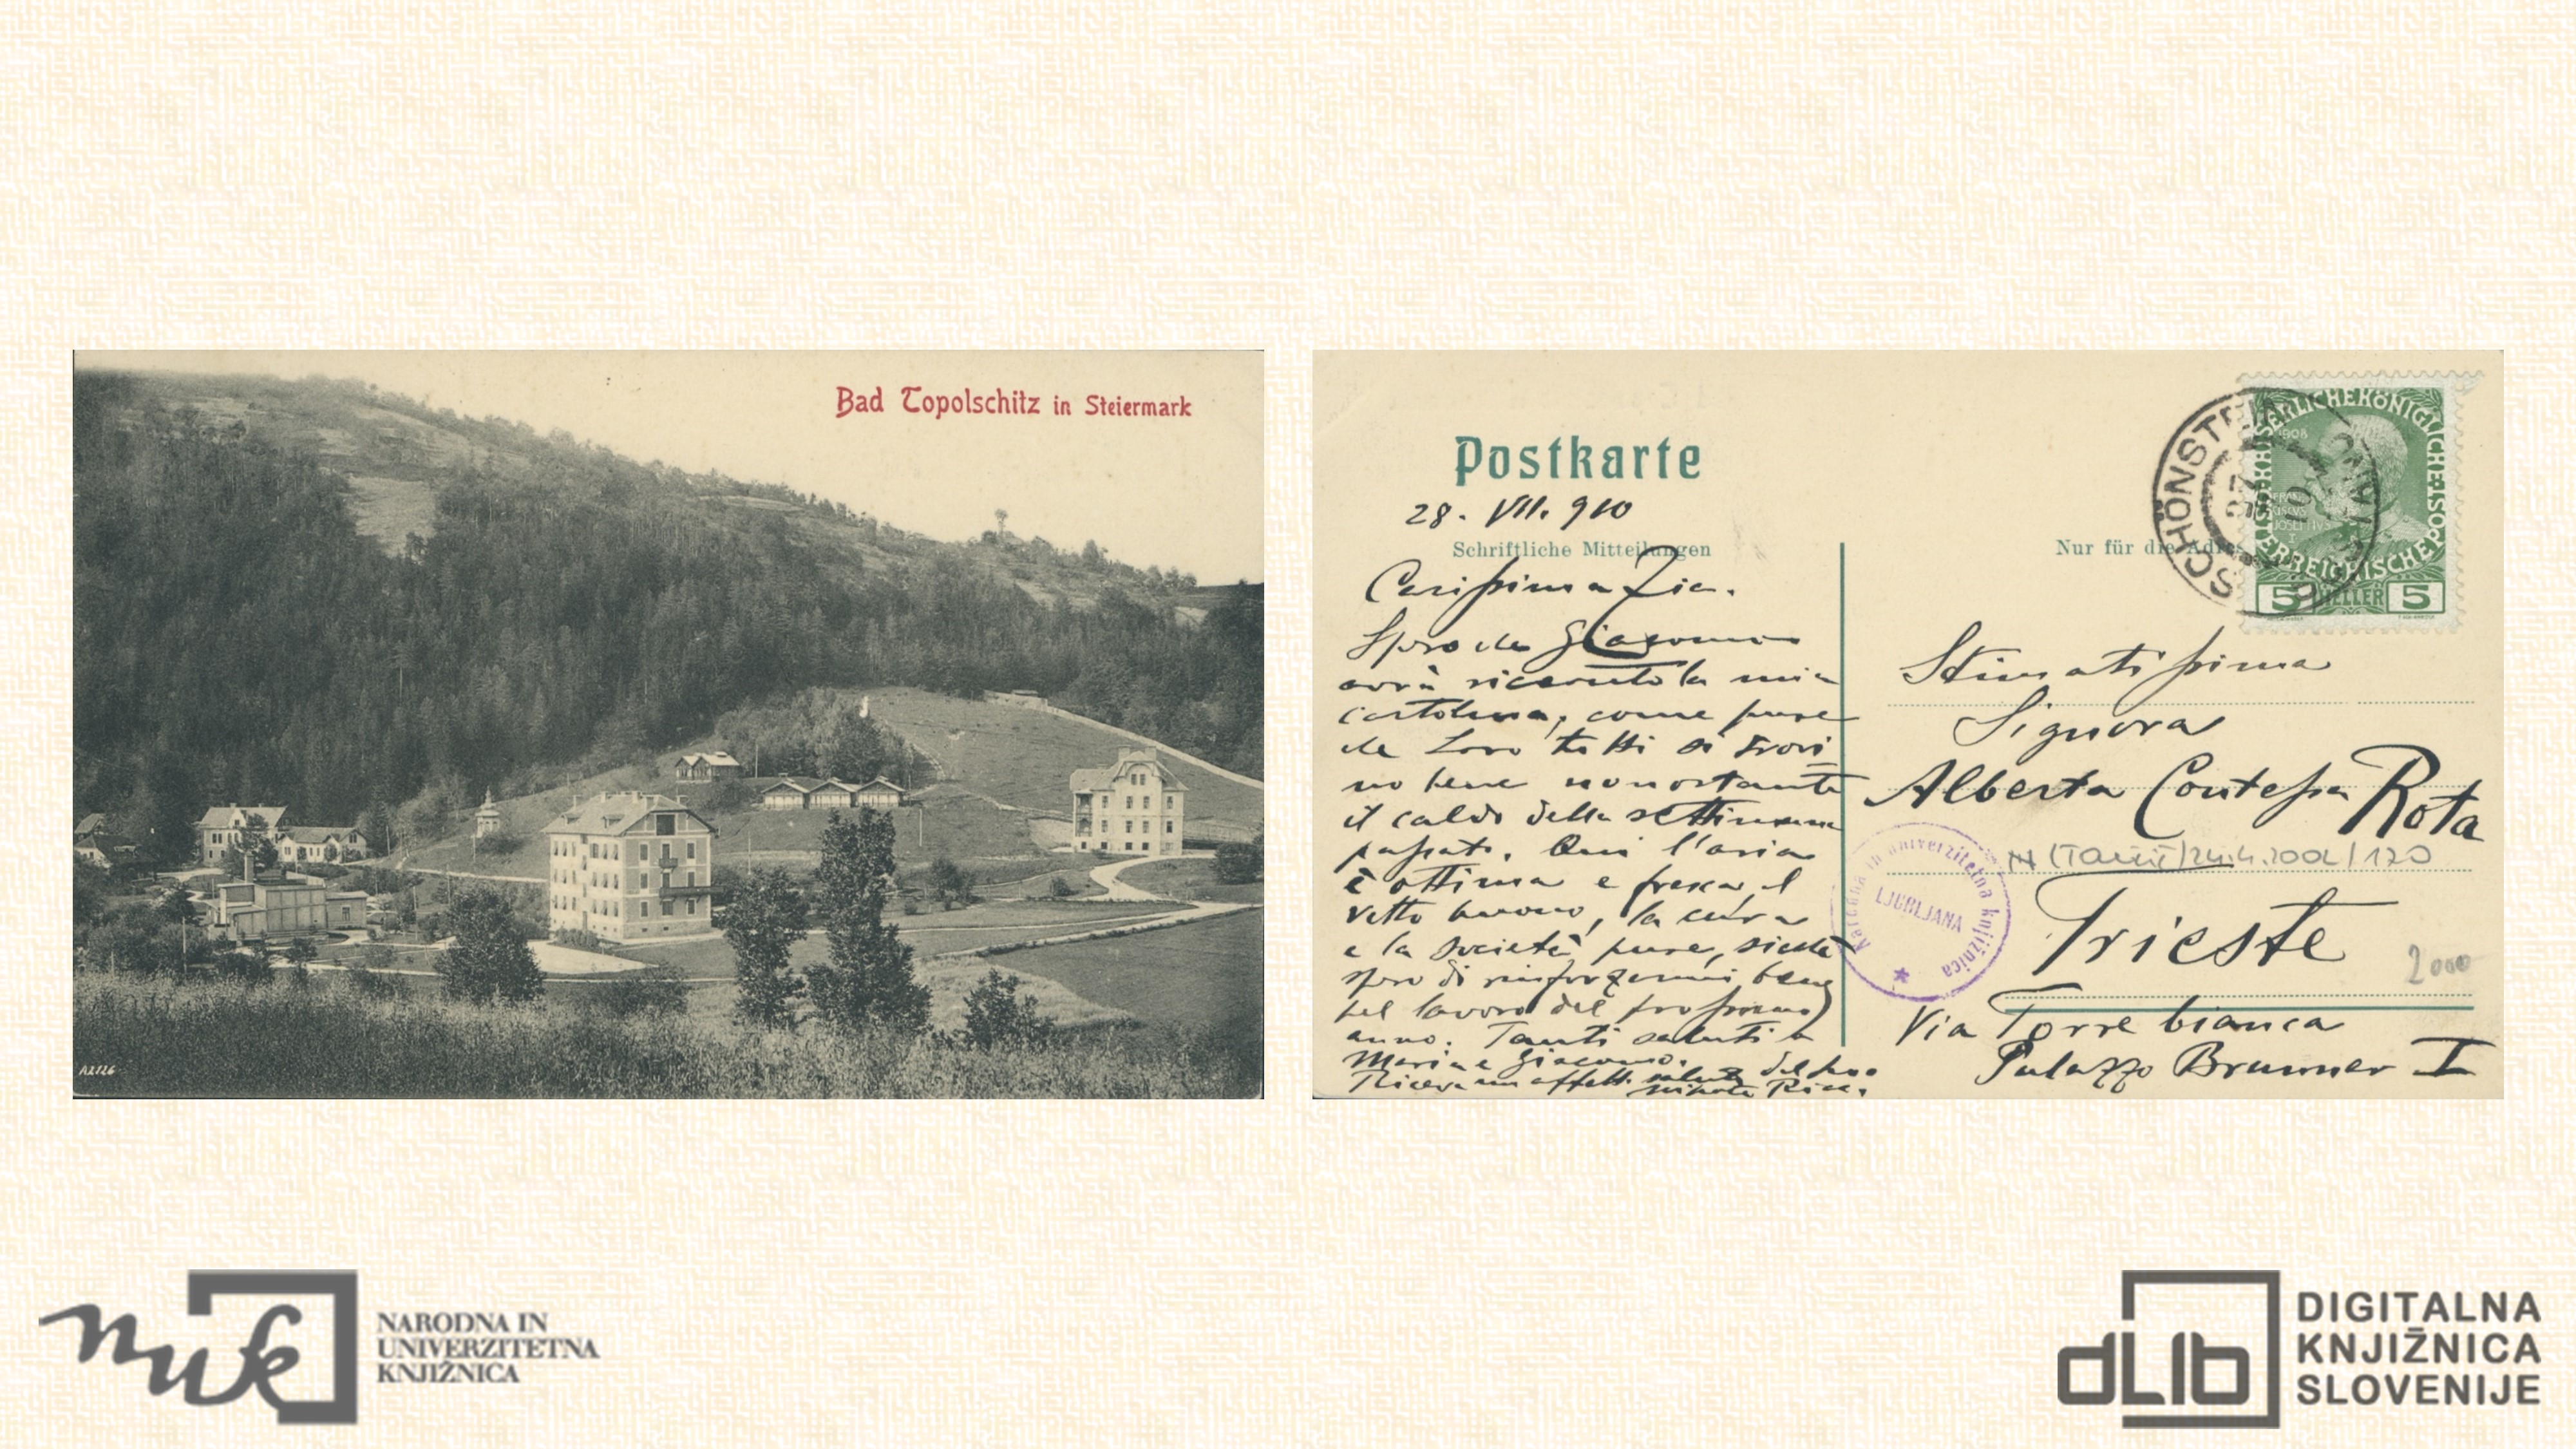 Bad Topolschitz in Steiermark
A2126
Postkarte
28. VII. 910
Schriftliche Mitteilungen
Carissima Zia.
Spero che Giacomo
avrà ricevuto la mia
cartolina, come pure
che Loro tutti si trovi
no bene nonostante
il caldo della settimana
passata. Qui l'aria
è ottima e fresca, il
vitto buono, la cura
e la società pure, sicchè
spero di rinforzarmi bene
pel lavoro del prossimo
anno. Tanti saluti a
Maria e Giacomo.
Riceva un affett. saluto dal suo
nipote
Nur für die Adre
SCHÖNST
27
KAISERLICHEKÖNIGLICHEÖSTERREICHISCHEPOST
1908
5 HELLER 5
Stimatissima
Signora
Alberta Contessa Rota
24.4.2002/120
Narodna in univerzitetna knjižnica
LJUBLJANA
Trieste
2000
Via Torre bianca
Palazzo Brunner I
nuk
NARODNA IN
UNIVERZITETNA
KNJIŽNICA
dLib
DIGITALNA
KNJIŽNICA
SLOVENIJE